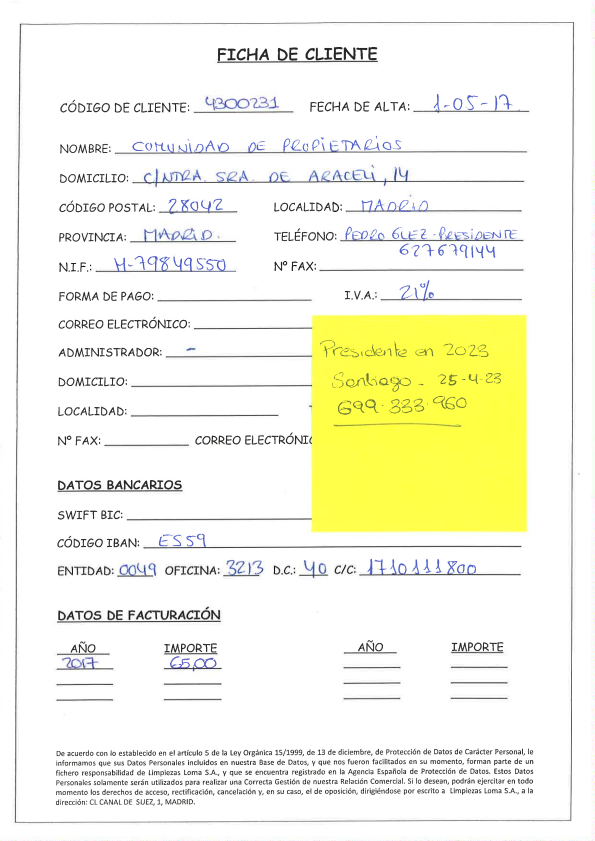 FICHA DE CLIENTE
CÓDIGO DE CLIENTE: 4300231 FECHA DE ALTA: 1-05-17
NOMBRE: COMUNIDAD DE PROPIETARIOS
DOMICILIO: C/NTRA. SRA. DE ARACELI, 14
CÓDIGO POSTAL: 28042 LOCALIDAD: MADRID
PROVINCIA: MADRID. TELÉFONO: PEDRO GLEZ-PRESIDENTE
627679144
N.I.F.: H-79849550 Nº FAX:
FORMA DE PAGO: I.V.A.: 21%
CORREO ELECTRÓNICO:
ADMINISTRADOR: -
Presidente en 2023
DOMICILIO:
Santiago - 25-4-23
LOCALIDAD:
699.333.960
Nº FAX: CORREO ELECTRÓNIC
DATOS BANCARIOS
SWIFT BIC:
CÓDIGO IBAN: ES59
ENTIDAD: 0049 OFICINA: 3213 D.C.: 40 C/C: 1710111800
DATOS DE FACTURACIÓN
AÑO IMPORTE AÑO IMPORTE
2017 65,00
De acuerdo con lo establecido en el artículo 5 de la Ley Orgánica 15/1999, de 13 de diciembre, de Protección de Datos de Carácter Personal, le
informamos que sus Datos Personales incluidos en nuestra Base de Datos, y que nos fueron facilitados en su momento, forman parte de un
fichero responsabilidad de Limpiezas Loma S.A., y que se encuentra registrado en la Agencia Española de Protección de Datos. Estos Datos
Personales solamente serán utilizados para realizar una Correcta Gestión de nuestra Relación Comercial. Si lo desean, podrán ejercitar en todo
momento los derechos de acceso, rectificación, cancelación y, en su caso, el de oposición, dirigiéndose por escrito a Limpiezas Loma S.A., a la
dirección: CL CANAL DE SUEZ, 1, MADRID.